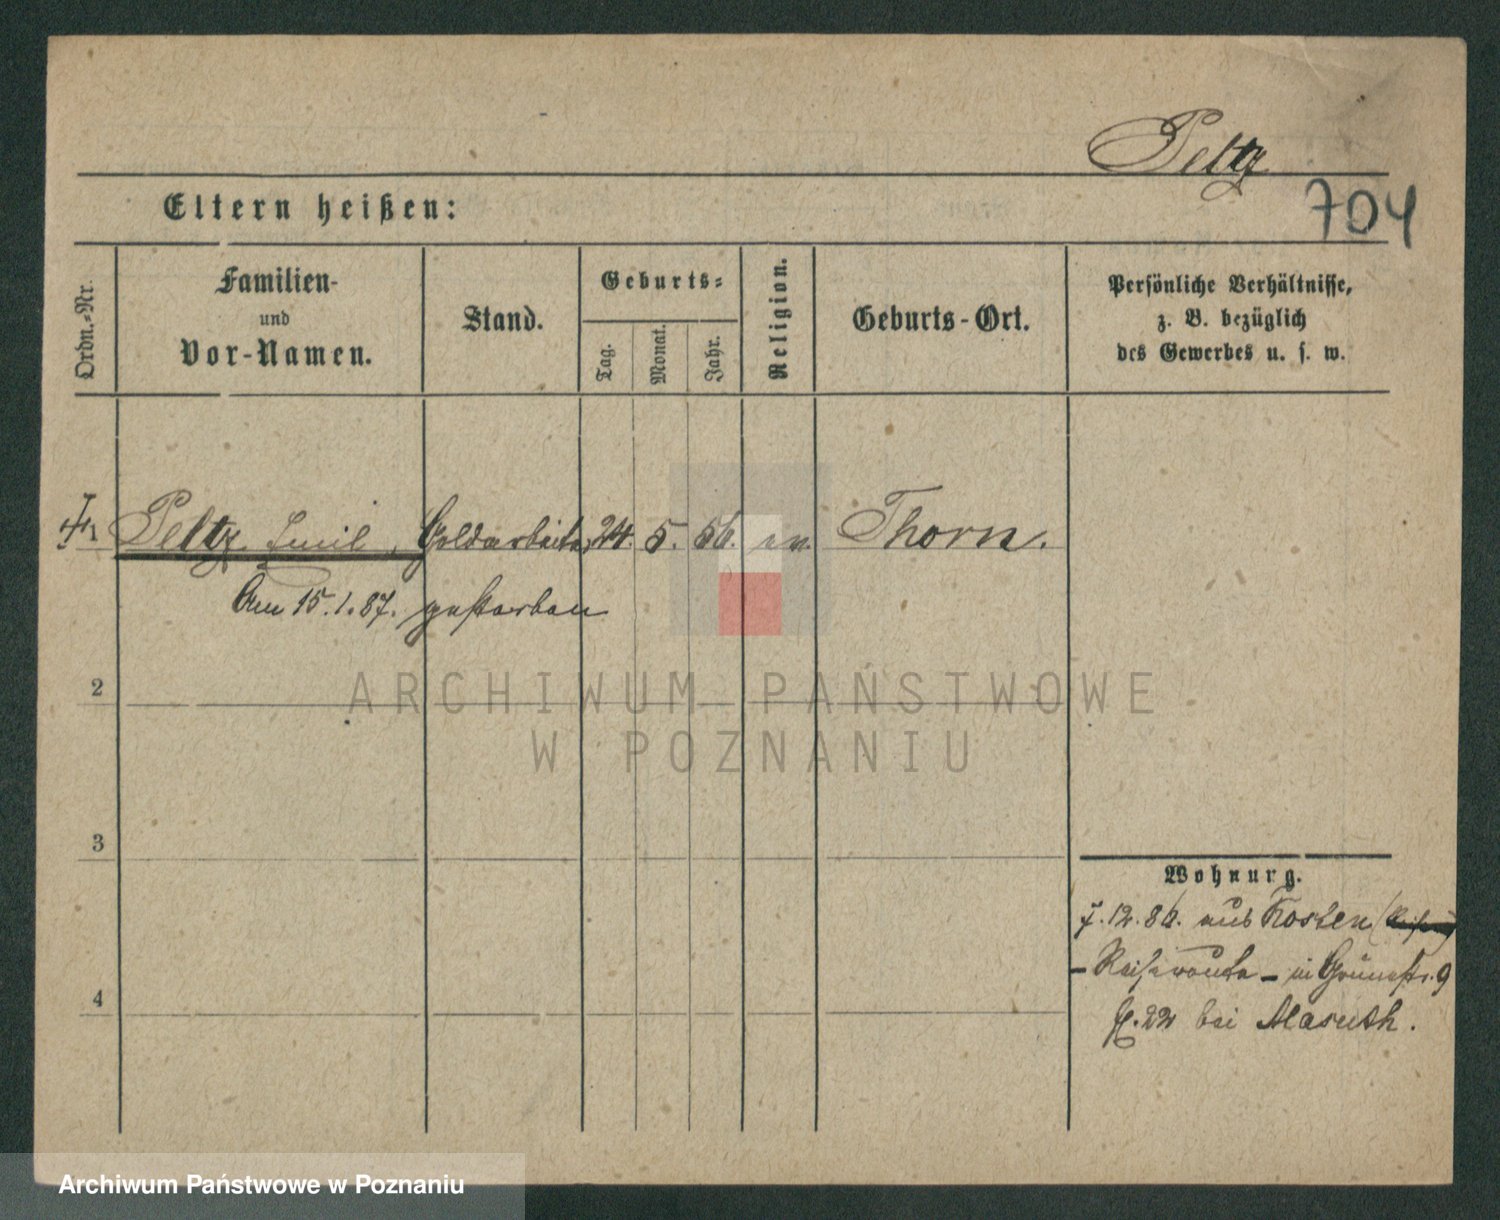 Peltz
Eltern heißen:
704
Ordn.-Nr.
Familien-
und
Vor-Namen.
Stand.
Geburts-
Tag.
Monat.
Jahr.
Religion.
Geburts-Ort.
Persönliche Verhältnisse,
z. B. bezüglich
des Gewerbes u. s. w.
1 Peltz Emil Goldarbeiter 24. 5. 56. ev. Thorn.
Am 15.1.87. gestorben
2
3
4
ARCHIWUM PAŃSTWOWE
W POZNANIU
Wohnung.
7.12.86. aus Kosten
- Reiseroute - in Grünestr. 9
H. 22 bei Masuth.
Archiwum Państwowe w Poznaniu